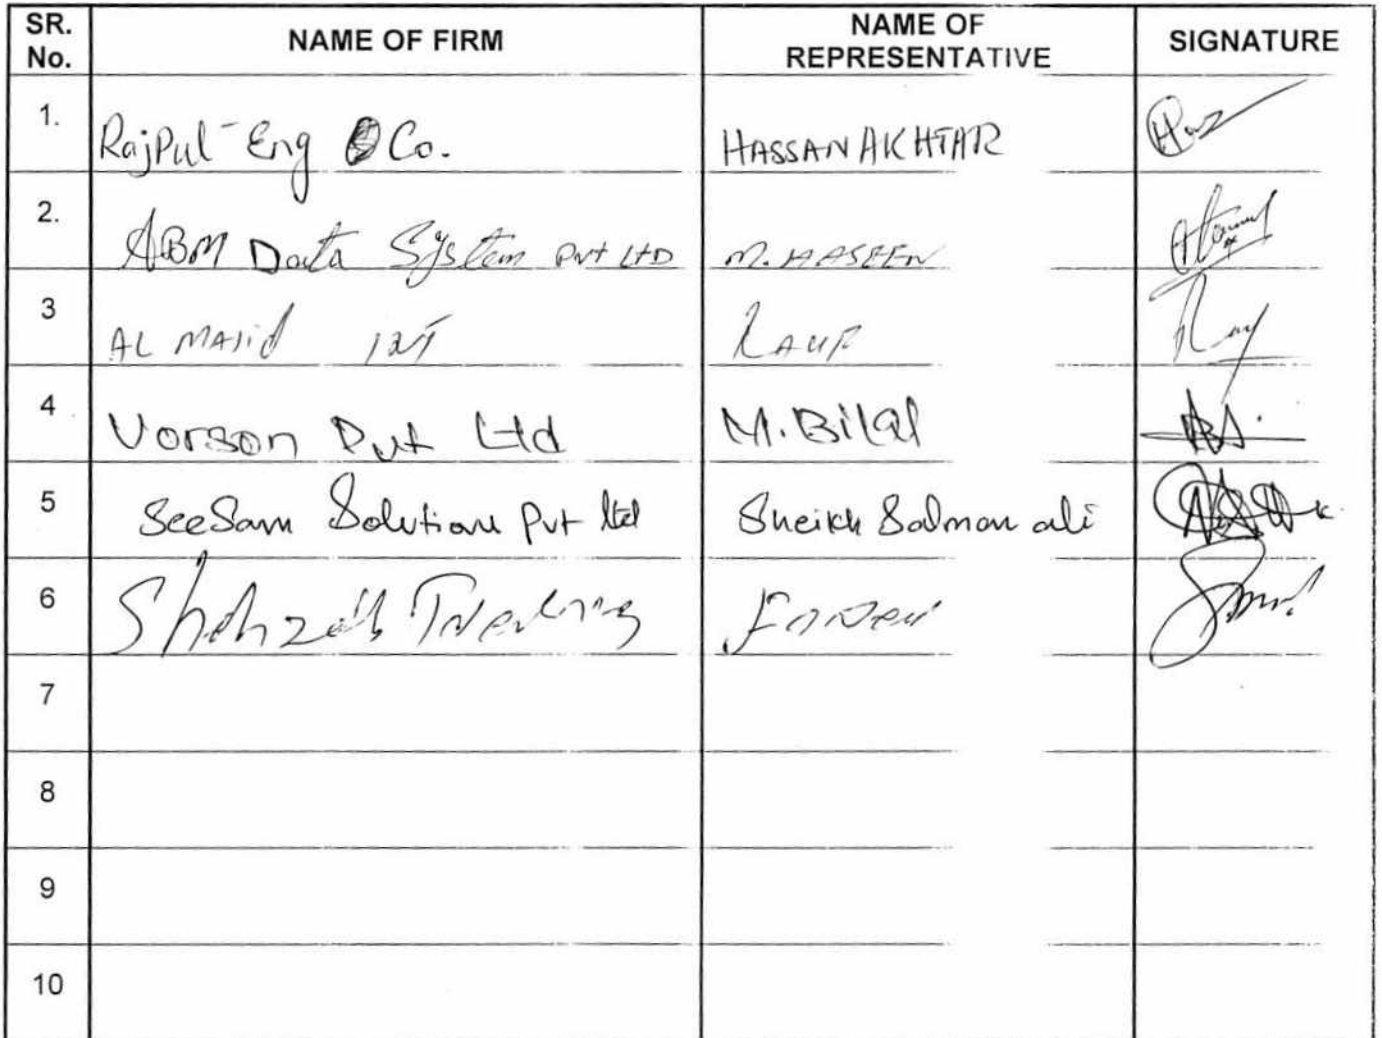 SR. No.
NAME OF FIRM
NAME OF REPRESENTATIVE
SIGNATURE
1. RajPut Eng Co. HASSAN AKHTAR
2. ABM Data System Pvt LTD M. HASEEN
3 AL MAJid INT RAUF
4 Vorson Pvt Ltd M. Bilal
5 SeeSam Solution Pvt ltd Sheikh Salman ali
6 Shahzad Trading
7
8
9
10